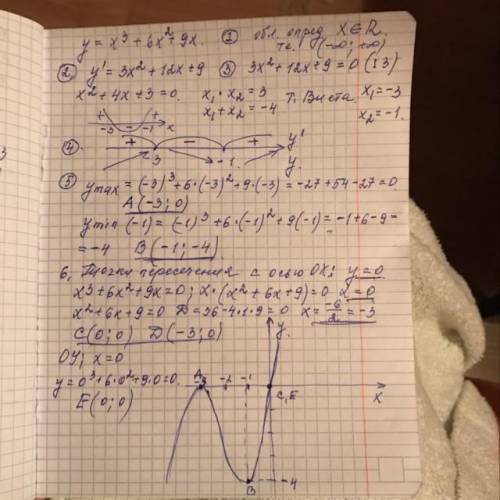 y = x³ + 6x² + 9x. ① обл. опред. X∈R.
т.е. (-∞; +∞)
② y' = 3x² + 12x + 9 ③ 3x² + 12x + 9 = 0 (:3)
x² + 4x + 3 = 0. x₁ · x₂ = 3 т. Виета x₁ = -3
x₁ + x₂ = -4 x₂ = -1.
+ -3 - -1 + x
④ + -3 - -1 + y'
y.
⑤ ymax = (-3)³ + 6·(-3)² + 9·(-3) = -27 + 54 - 27 = 0
A(-3; 0)
ymin (-1) = (-1)³ + 6·(-1)² + 9(-1) = -1 + 6 - 9 =
= -4 B(-1; -4)
6. Точки пересечения с осью OX: y = 0
x³ + 6x² + 9x = 0; x·(x² + 6x + 9) = 0 x = 0
x² + 6x + 9 = 0 D = 36 - 4·1·9 = 0 x = -6/2 = -3
C(0; 0) D(-3; 0)
OY; x = 0
y = 0³ + 6·0² + 9·0 = 0.
E(0; 0)
y.
A -3 -2 -1 C,E X
B -4